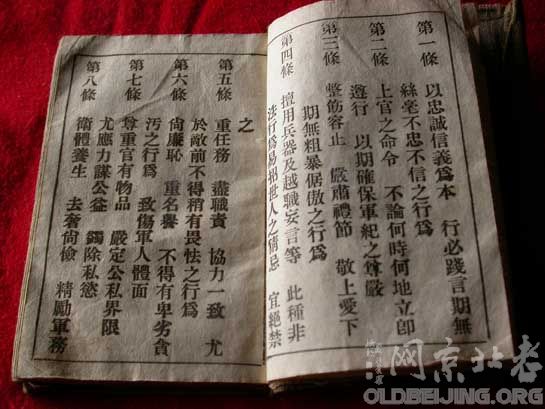 第一條 以忠誠信義爲本 行必踐言期無
絲毫不忠不信之行爲
第二條 上官之命令 不論何時何地立卽
遵行 以期確保軍紀之尊嚴
第三條 整飭容止 嚴肅禮節 敬上愛下
期無粗暴倨傲之行爲
第四條 擅用兵器及越職妄言等 此種非
法行爲易招世人之猜忌 宜絕禁
之
第五條 重任務 盡職責 協力一致 尤
於敵前不得稍有畏怯之行爲
第六條 尙廉恥 重名譽 不得有卑劣貪
汚之行爲 致傷軍人體面
第七條 尊重官有物品 嚴定公私界限
尤應力謀公益 蠲除私慾
第八條 衛體養生 去奢尙儉 精勵軍務
老北京網
OLDBEIJING.ORG